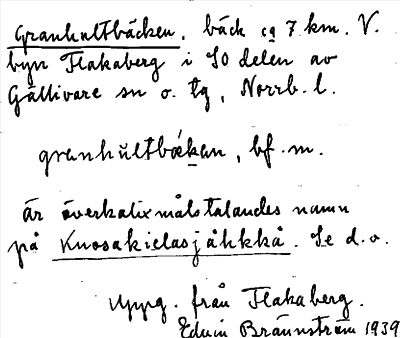 Granhultbäcken, bäck ca 7 km. V.
byn Flakaberg i SO delen av
Gällivare sn o. tg, Norrb. l.
granhŭltbǽkan, bf. m.
är överkalixmålstalandes namn
på Knosakielasjåhkkå. Se d.o.
Uppg. från Flakaberg.
Edvin Brännström 1939